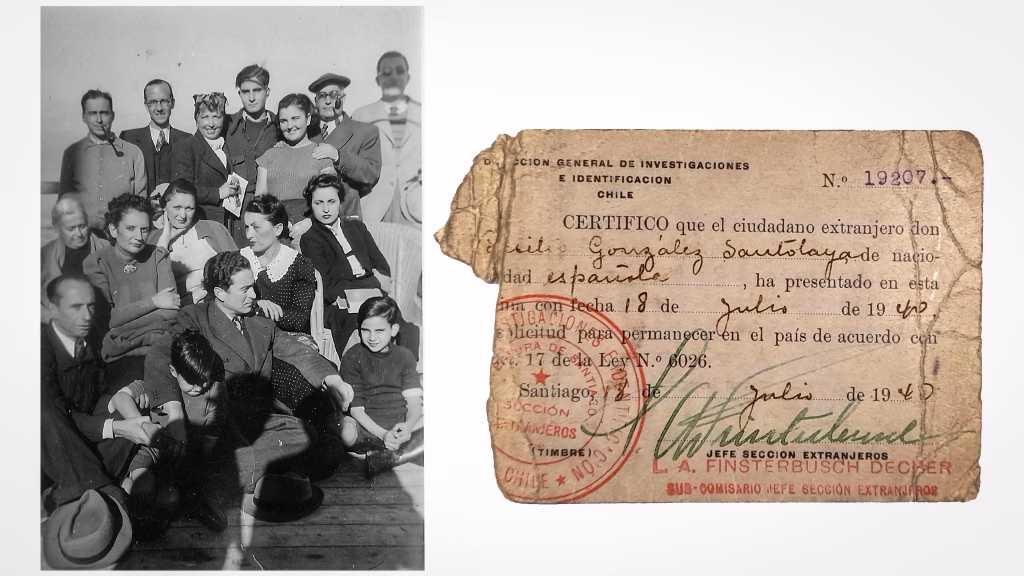 CCION GENERAL DE INVESTIGACIONES
E IDENTIFICACION
CHILE
N.º 19207.-
CERTIFICO que el ciudadano extranjero don
González Santolaya de nacio-
dad española, ha presentado en esta
con fecha 18 de Julio de 1940,
solicitud para permanecer en el país de acuerdo con
17 de la Ley N.º 6026.
Santiago, 18 de Julio de 1940
(TIMBRE)
JEFE SECCIÓN EXTRANJEROS
L. A. FINSTERBUSCH DECHER
SUB-COMISARIO JEFE SECCIÓN EXTRANJEROS
SECCIÓN
CHILE